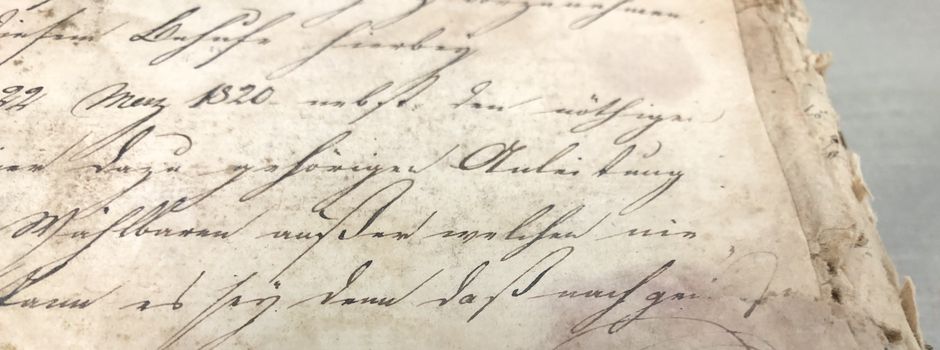 vorzunehmen,
diesem Behufe hierbey
22 Merz 1820. nebst den nöthigen
dazu gehörigen Anleitung
Wählbaren außer welchen nie
kann es sey denn daß